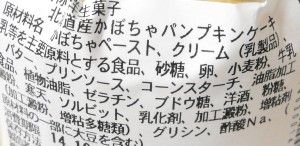 洋生菓子
北海道産かぼちゃパンプキンケーキ
原材料名 かぼちゃペースト、クリーム(乳製品)、
乳等を主要原料とする食品、砂糖、卵、小麦粉、牛乳、
バター、プリンソース、コーンスターチ、油脂加工
食品、植物油脂、ゼラチン、ブドウ糖、洋酒、粉糖、
寒天、ソルビット、乳化剤、加工澱粉、増粘剤
(加工澱粉、増粘多糖類)、グリシン、酢酸Na、(
原材料の一部に大豆を含む)
14.10